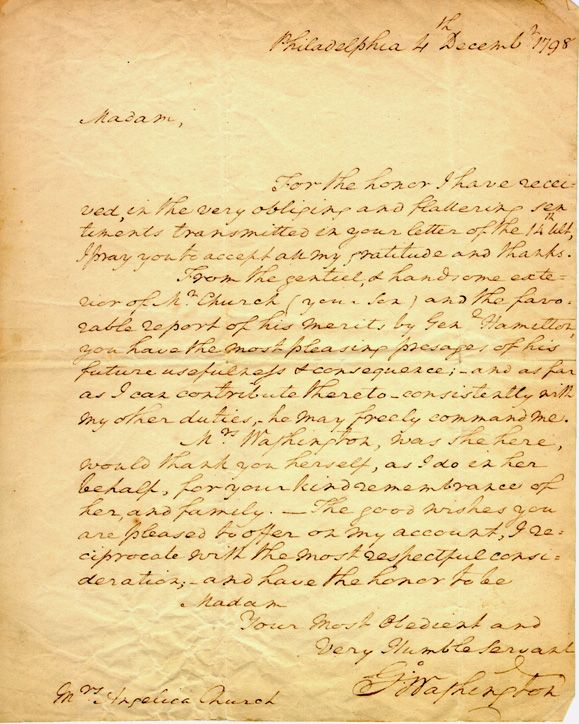 Philadelphia 4th Decembr 1798
Madam,
For the honor I have recei-
ved, in the very obliging and flattering sen
timents transmitted in your letter of the 14th ult,
I pray you to accept all my gratitude and thanks.
From the genteel, & handsome exte-
rior of Mr Church (your Son) and the favo-
rable report of his merits by Genl Hamilton,
you have the most pleasing presages of his
future usefulness & consequence;—and as far
as I can contribute thereto—consistently with
my other duties,—he may freely command me.
Mrs Washington, was she here,
would thank you herself, as I do in her
behalf, for your kind remembrance of
her, and family.—The good wishes you
are pleased to offer on my account, I re-
ciprocate with the most respectful consi-
deration;—and have the honor to be
Madam
Your Most Obedient and
Very Humble Servant
Go Washington
Mrs Angelica Church